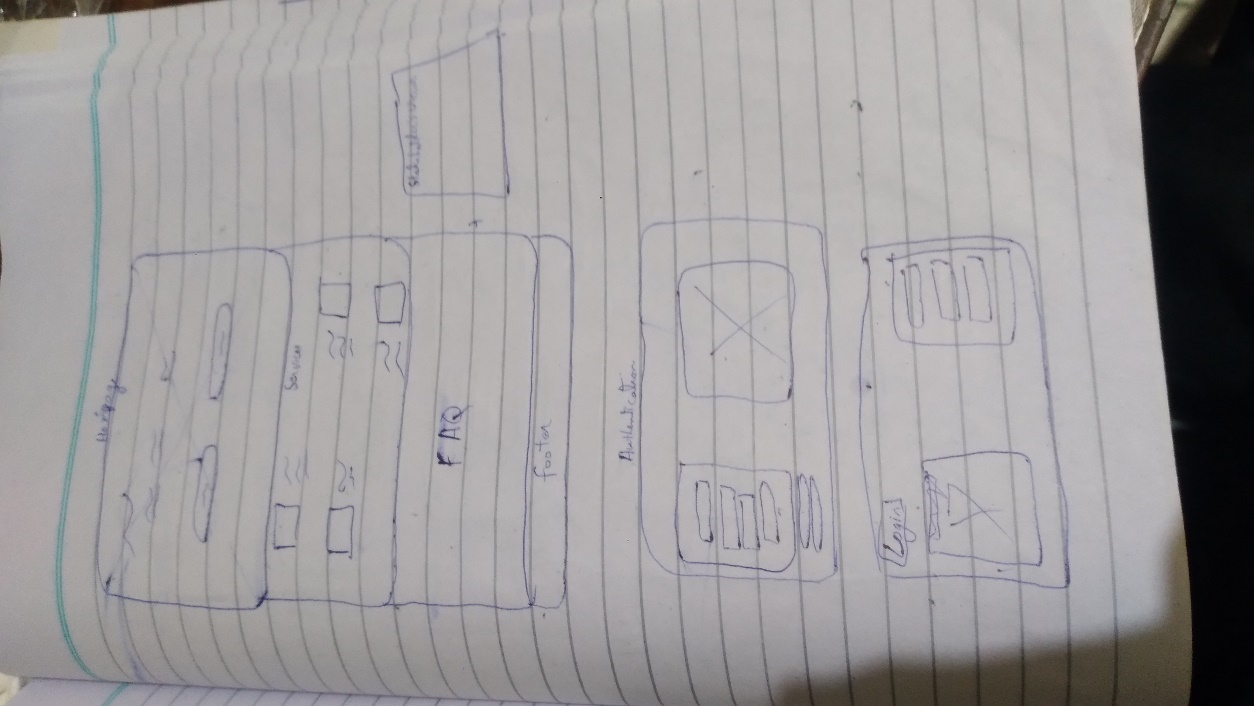 Services
FAQ
footer
Authentication
Login